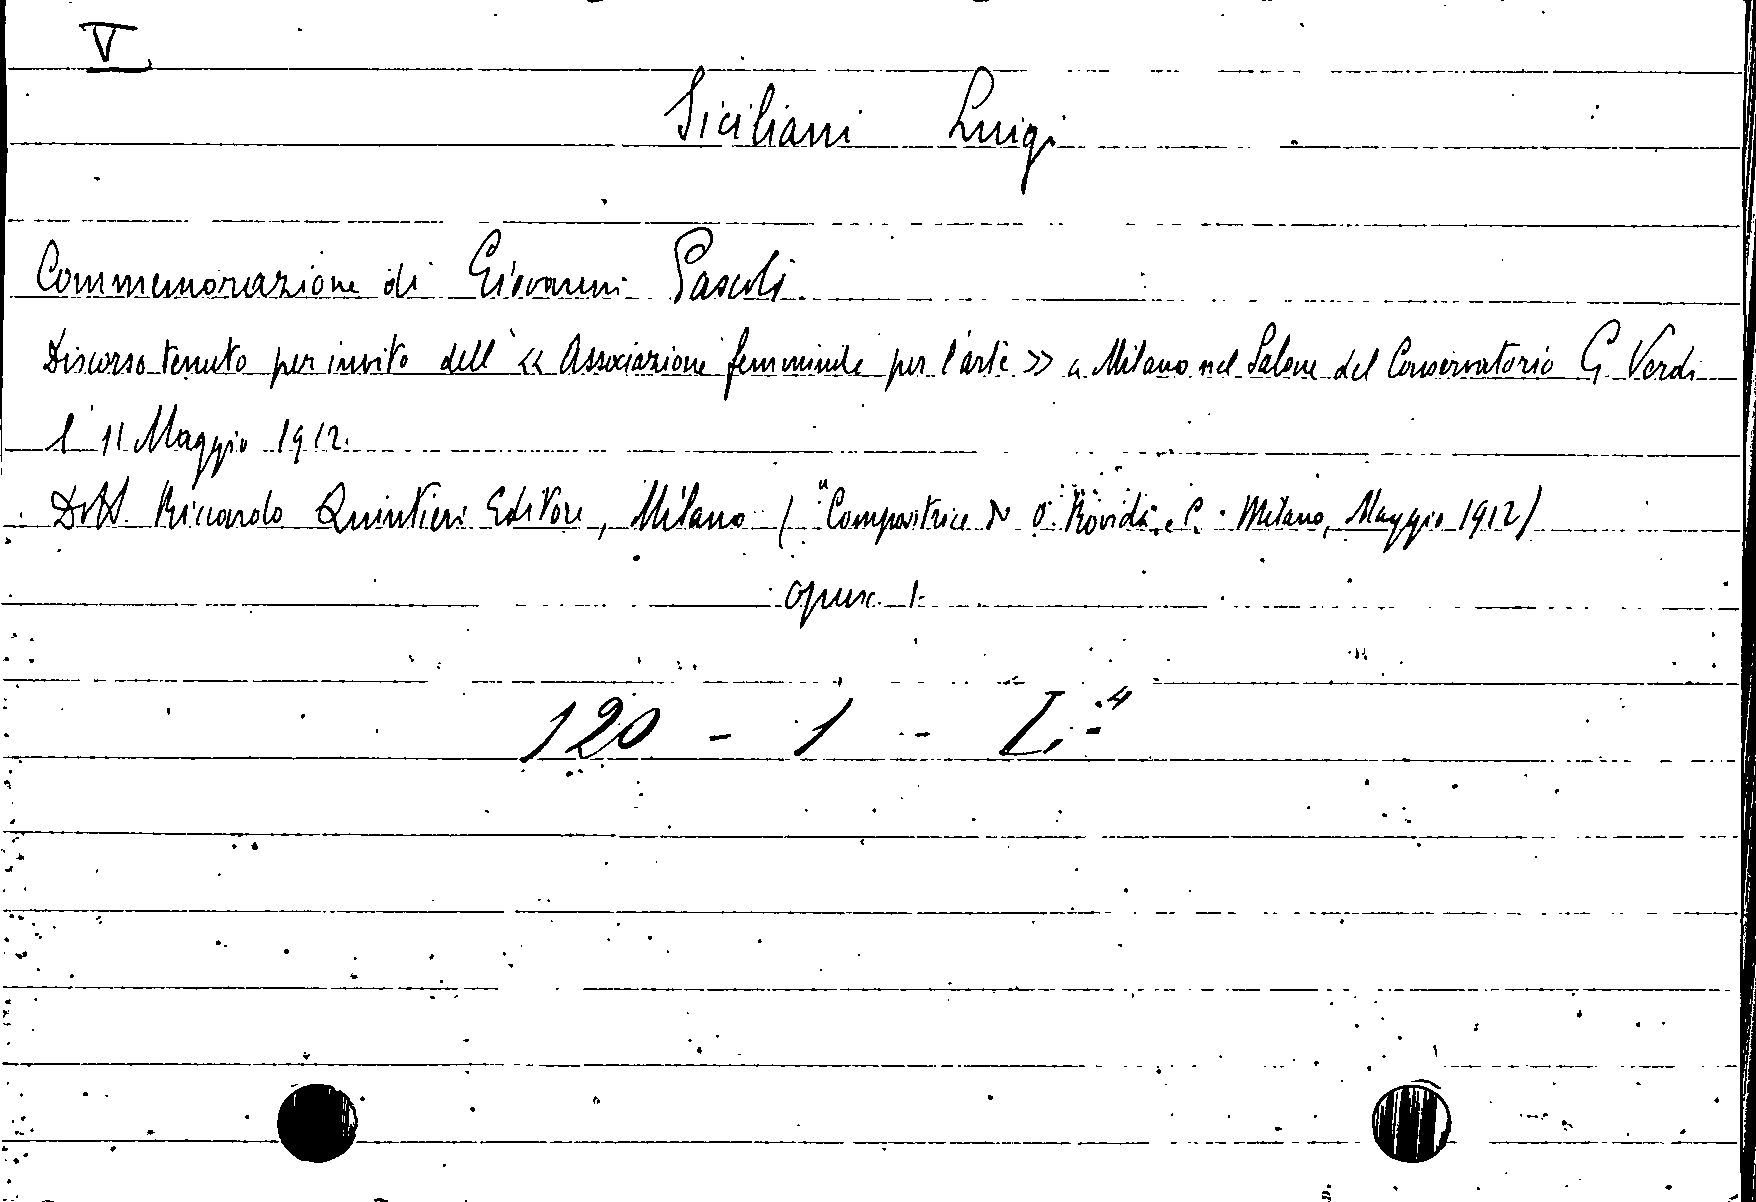 V
Siciliani Luigi
Commemorazione di Giovanni Pascoli.
Discorso tenuto per invito dell' << Associazione femminile per l'arte >> a Milano nel Salone del Conservatorio G. Verdi
l' 11 Maggio 1912.
Dott. Riccardo Quintieri Editore, Milano ( "Compositrice O. Rovida e C. - Milano, Maggio 1912)
opusc. 1.
120 - 1 -